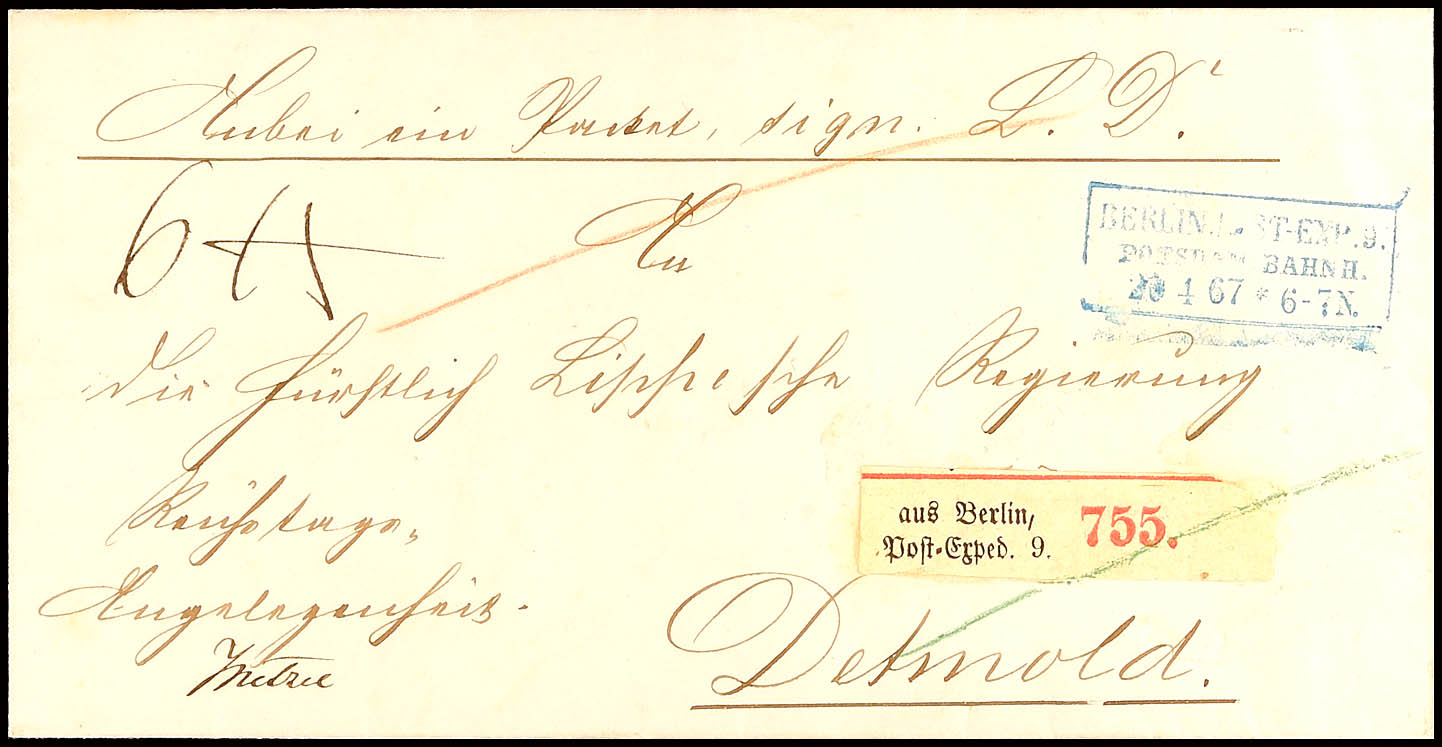 Anbei ein Packet, sign. L. D.
6
An
BERLIN. POST-EXP. 9.
POTSDAM. BAHNH.
20 4 67 * 6-7 N.
die Fürstlich Lippesche Regierung
Reichstags-
Angelegenheit.
aus Berlin,
Post-Exped. 9.
755.
Detmold.